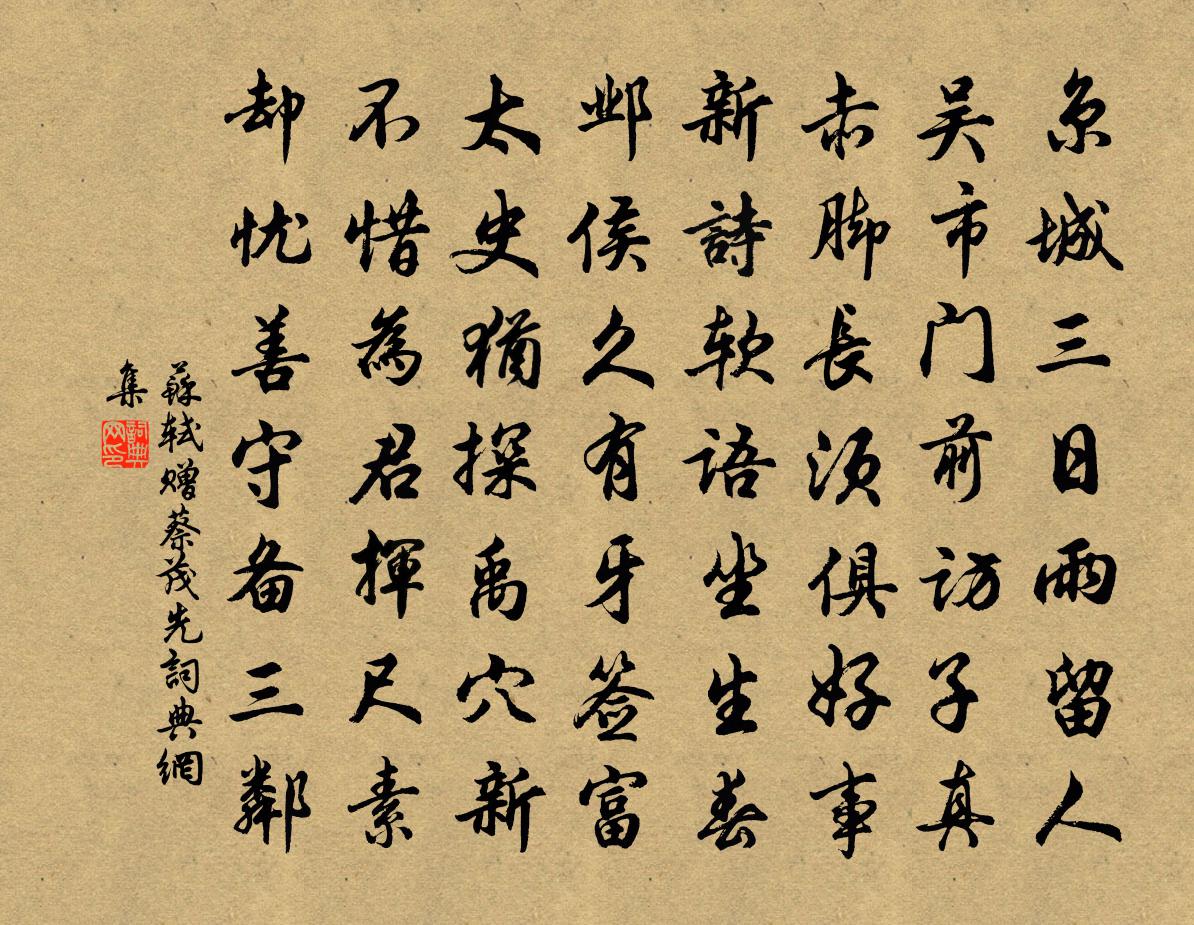 京城三日雨留人
吴市门前访子真
赤脚長须俱好事
新詩软语坐生春
邺侯久有牙签富
太史猶探禹穴新
不惜為君揮尺素
却忧善守备三鄰
蘇轼赠蔡茂先詞典網
集
詞典
网印